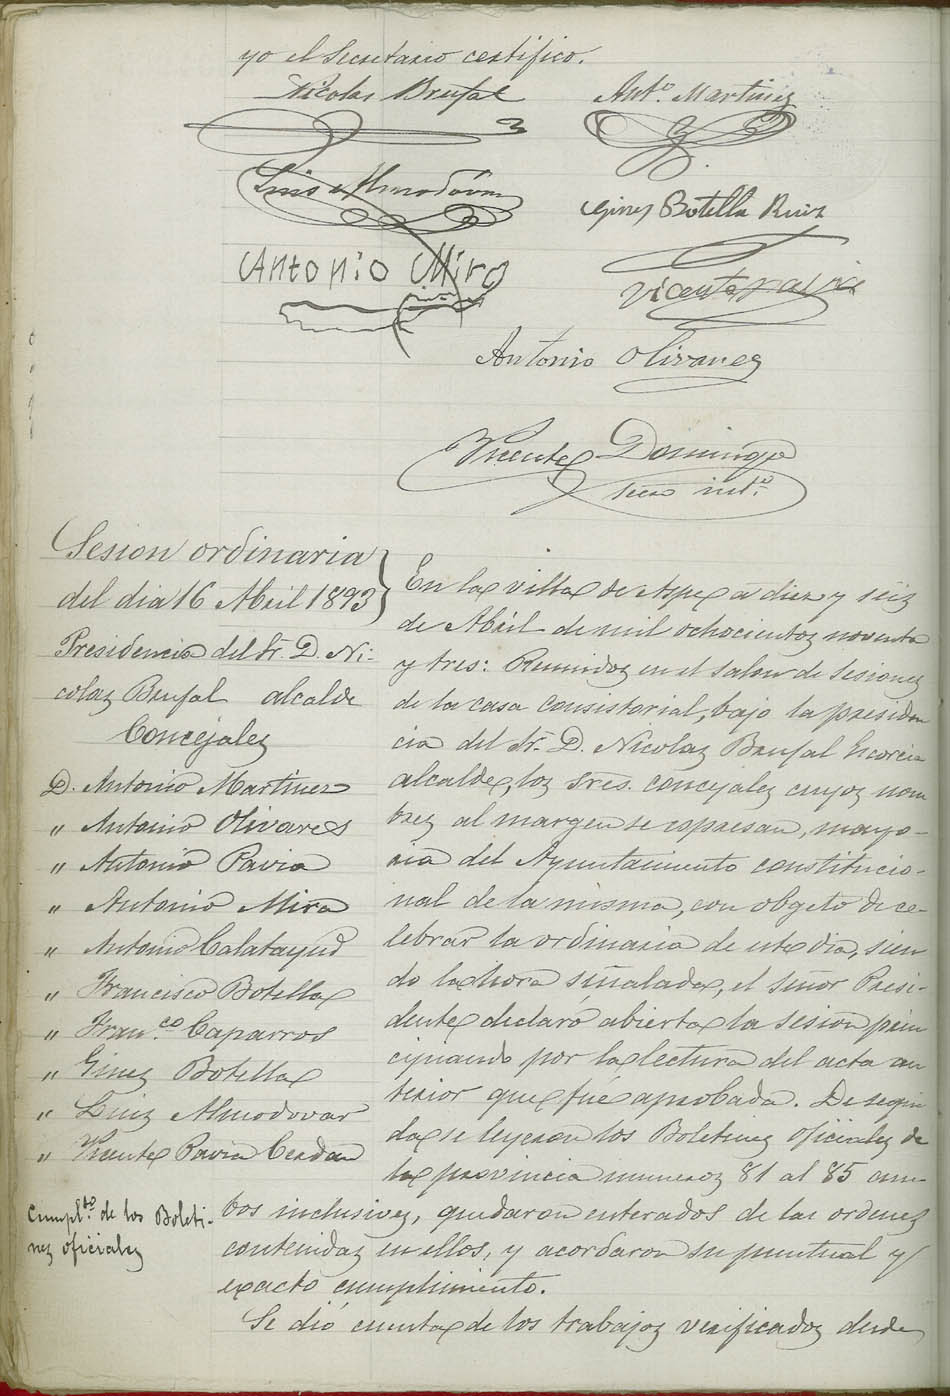 yo el Secretario certifico.
Nicolas Brufal
Antº. Martinez
Luis Almodóvar
Gines Botella Ruiz
Antonio Miro
Vicente Pavia
Antonio Olivarez
Vicente Domingo
Srio intº.
Sesion ordinaria
del dia 16 Abril 1893
Presidencia del Sr. D. Ni-
colas Brufal alcalde
Concejales
D. Antonio Martinez
" Antonio Olivares
" Antonio Pavia
" Antonio Mira
" Antonio Calatayud
" Francisco Botella
" Franco. Caparros
" Gines Botella
" Luis Almodovar
" Vicente Pavia Cerdan
En la villa de Aspe a diez y seis
de Abril de mil ochocientos noventa
y tres: Reunidos en el salon de sesiones
de la casa consistorial, bajo la presiden
cia del Sr. D. Nicolas Brufal Escorcia
alcalde, los Sres. concejales cuyos nom
bres al margen se espresan, mayo-
ria del Ayuntamiento constitucio-
nal de la misma, con obgeto de ce-
lebrar la ordinaria de este dia, sien
do la hora señalada, el señor Presi-
dente declaró abierta la sesion prin
cipiando por la lectura del acta an
terior que fué aprobada. De segui
da se leyeron los Boletines oficiales de
la provincia numeros 81 al 85 am-
bos inclusives, quedaron enterados de las ordenes
contenidas en ellos, y acordaron su puntual y
exacto cumplimiento.
Cumplto. de los Boleti-
nes oficiales
Se dió cuenta de los trabajos verificados desde